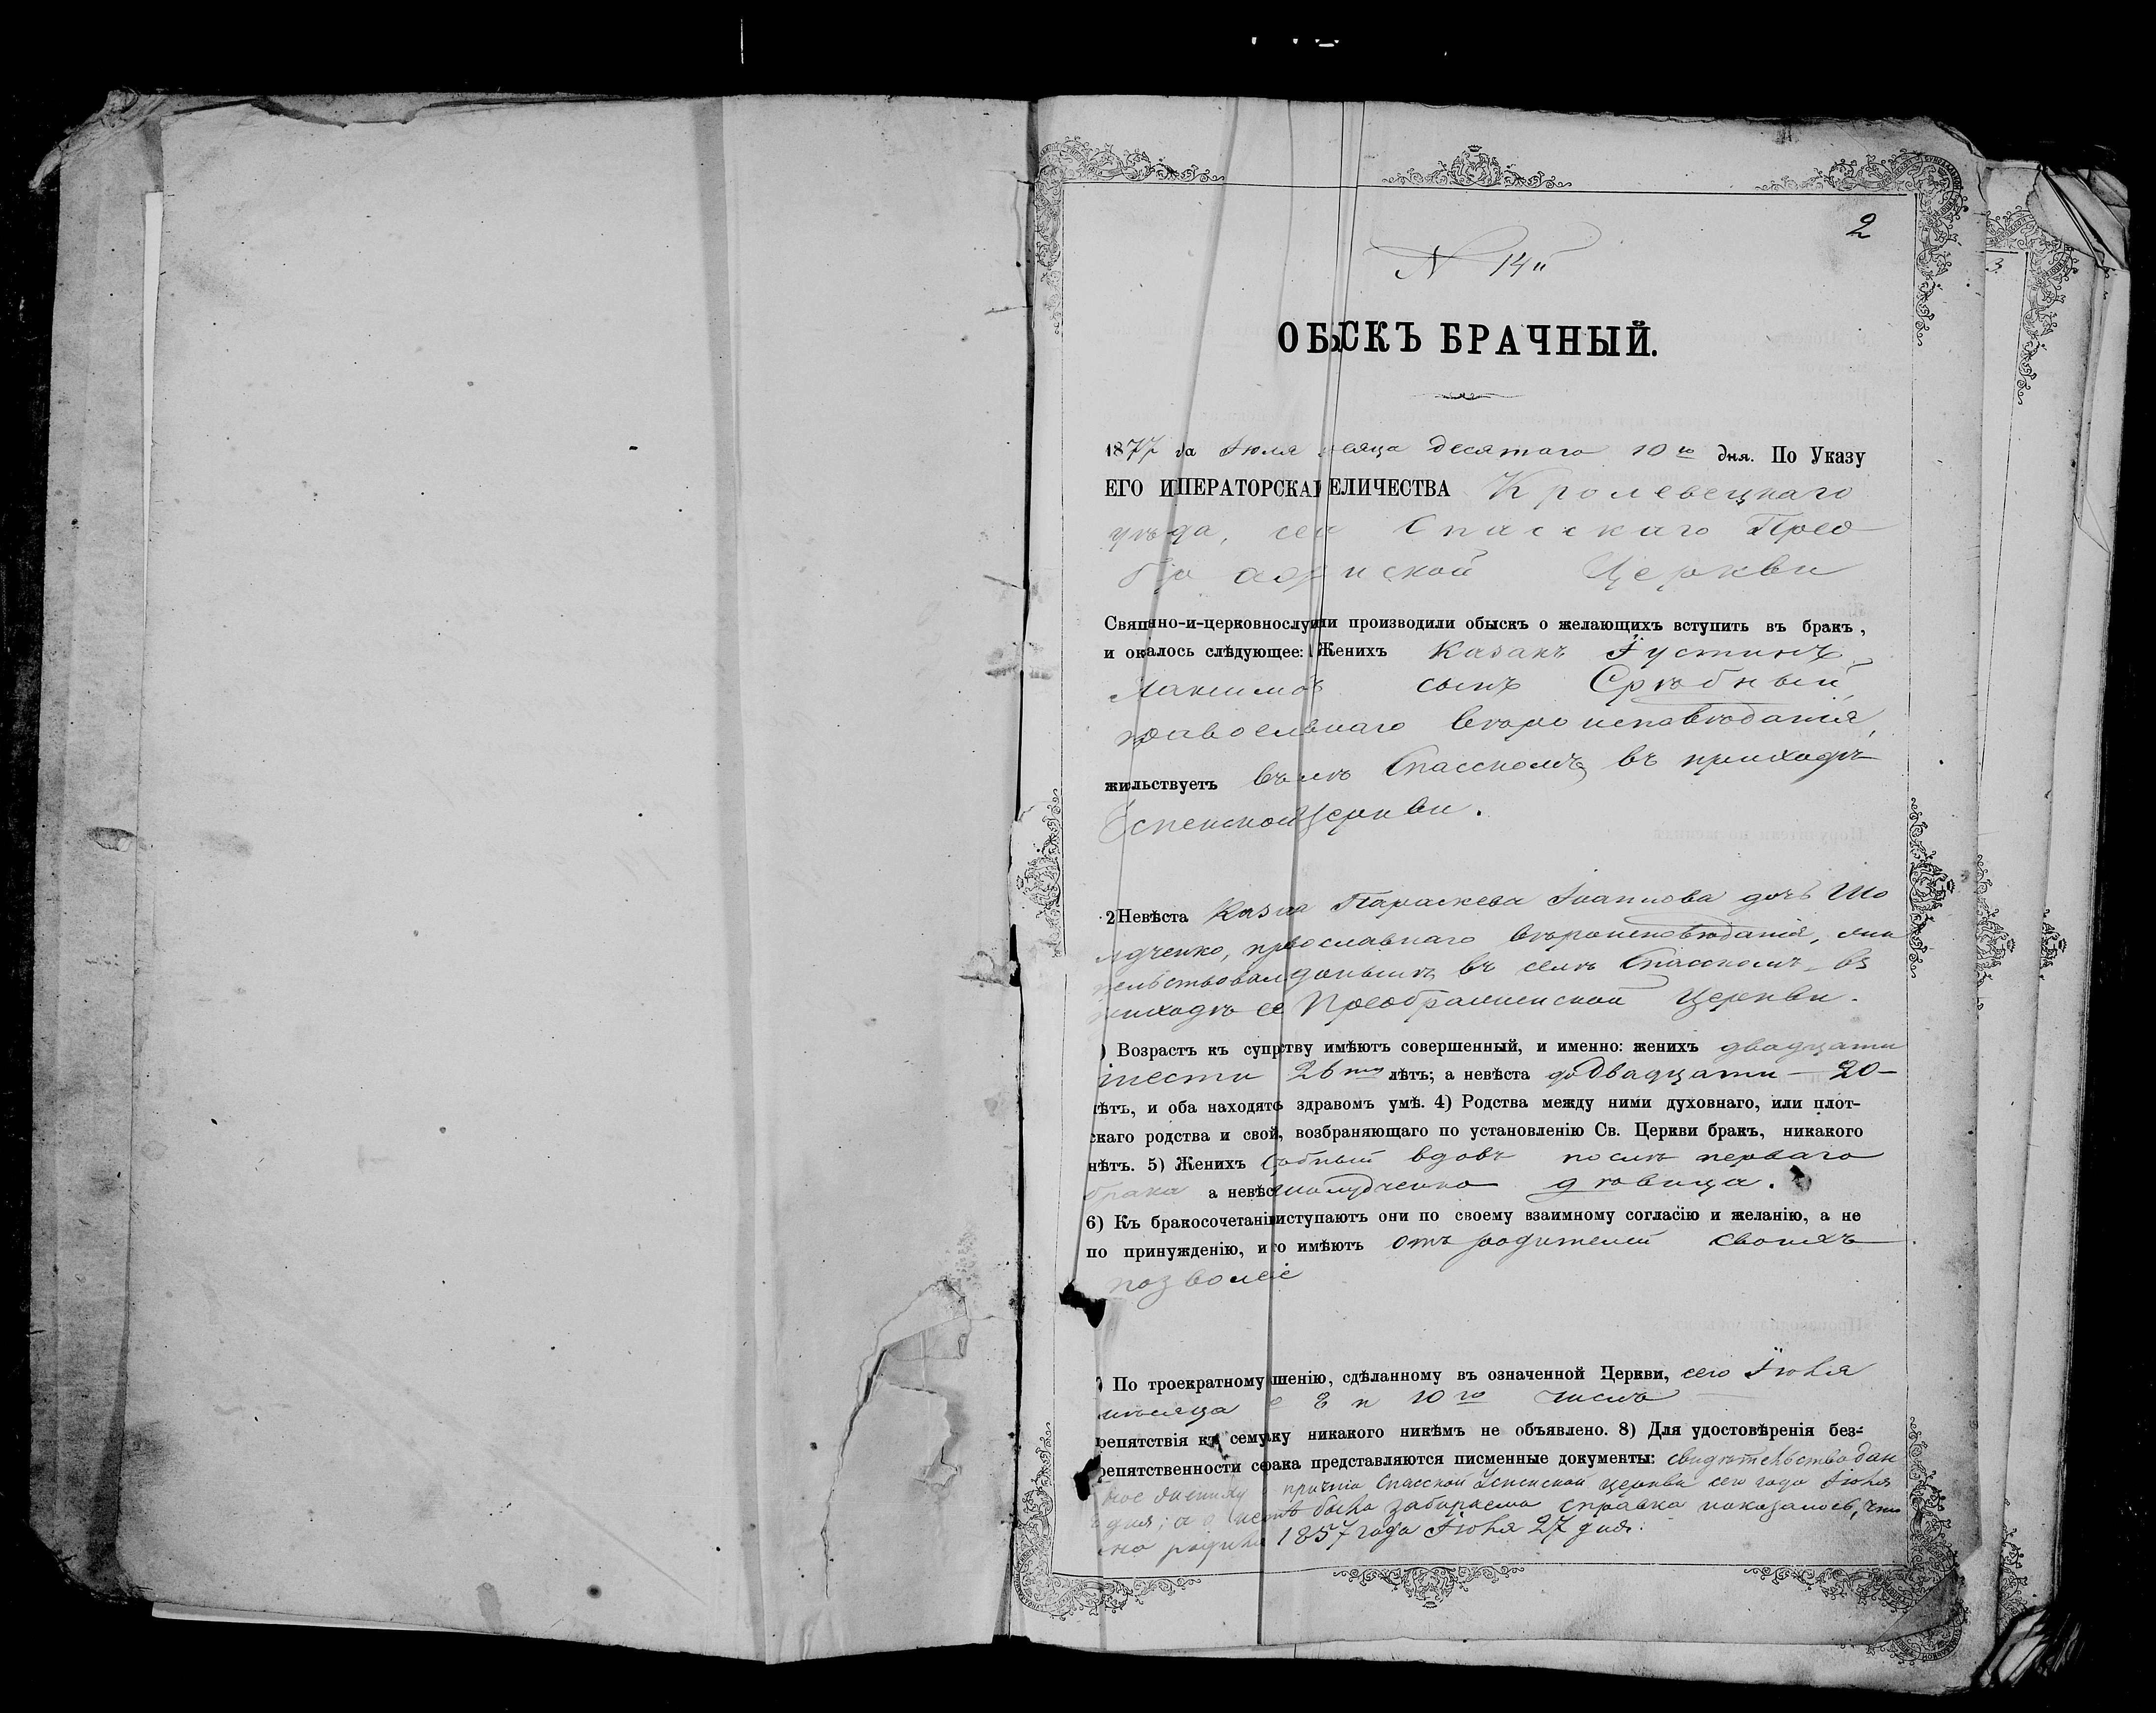 2
N 14й
ОБЫСКЪ БРАЧНЫЙ.
1877 да Іюля есяца десятаго 10го дня. По Указу
ЕГО ИПЕРАТОРСКА ЕЛИЧЕСТВА Кролевецкаго
уѣзда, сел Спасскаго Прео
бра нской Церкви
Свящнно-и-церковнослуили производили обыскъ о желающихъ вступить въ бракъ,
и окалось слѣдующее: Женихъ казакъ Іустинъ
Максимовъ сынъ Срѣбный,
православнаго вѣроисповѣданія,
жильствуетъ въ Спасскомъ, въ приходѣ
Успенской Церкви.
2 Невѣста Параскева Іоаннова дочь Шо
лудченко, православнаго вѣроисповѣданія, жи
тельствовала донынѣ въ селѣ Спасскомъ въ
приходѣ се Преображенской Церкви.
) Возрастъ къ супрству имѣютъ совершенный, и именно: женихъ двадцати
шести 26ти лѣтъ; а невѣста до двадцати — 20 —
лѣтъ, и оба находятс здравомъ умѣ. 4) Родства между ними духовнаго, или плот-
скаго родства и свой, возбраняющаго по установленію Св. Церкви бракъ, никакого
нѣтъ. 5) Женихъ Срѣбный вдовъ послѣ перваго
брака а невѣс Шолудченко дѣвица.
6) Къ бракосочетанію иступаютъ они по своему взаимному согласію и желанію, а не
по принужденію, и го имѣютъ отъ родителей своихъ
позволеіе
) По троекратному шенію, сдѣланному въ означенной Церкви, сего Іюля
мѣсяца 8 и 10го числѣ
репятствія къ сему ку никакого никѣмъ не объявлено. 8) Для удостовѣренія без-
репятственности с рака представляются писменные документы: свидѣтельство дан
ное жениху причта Спасской Успенской церкви сего года Іюля
дня; а о невѣстѣ была забираема справка показалось, что
она родила 1857 года Іюля 27 дня.
3.